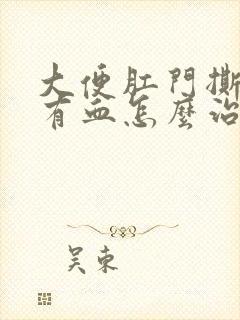 大便肛門撕
有血怎麼治
吴東